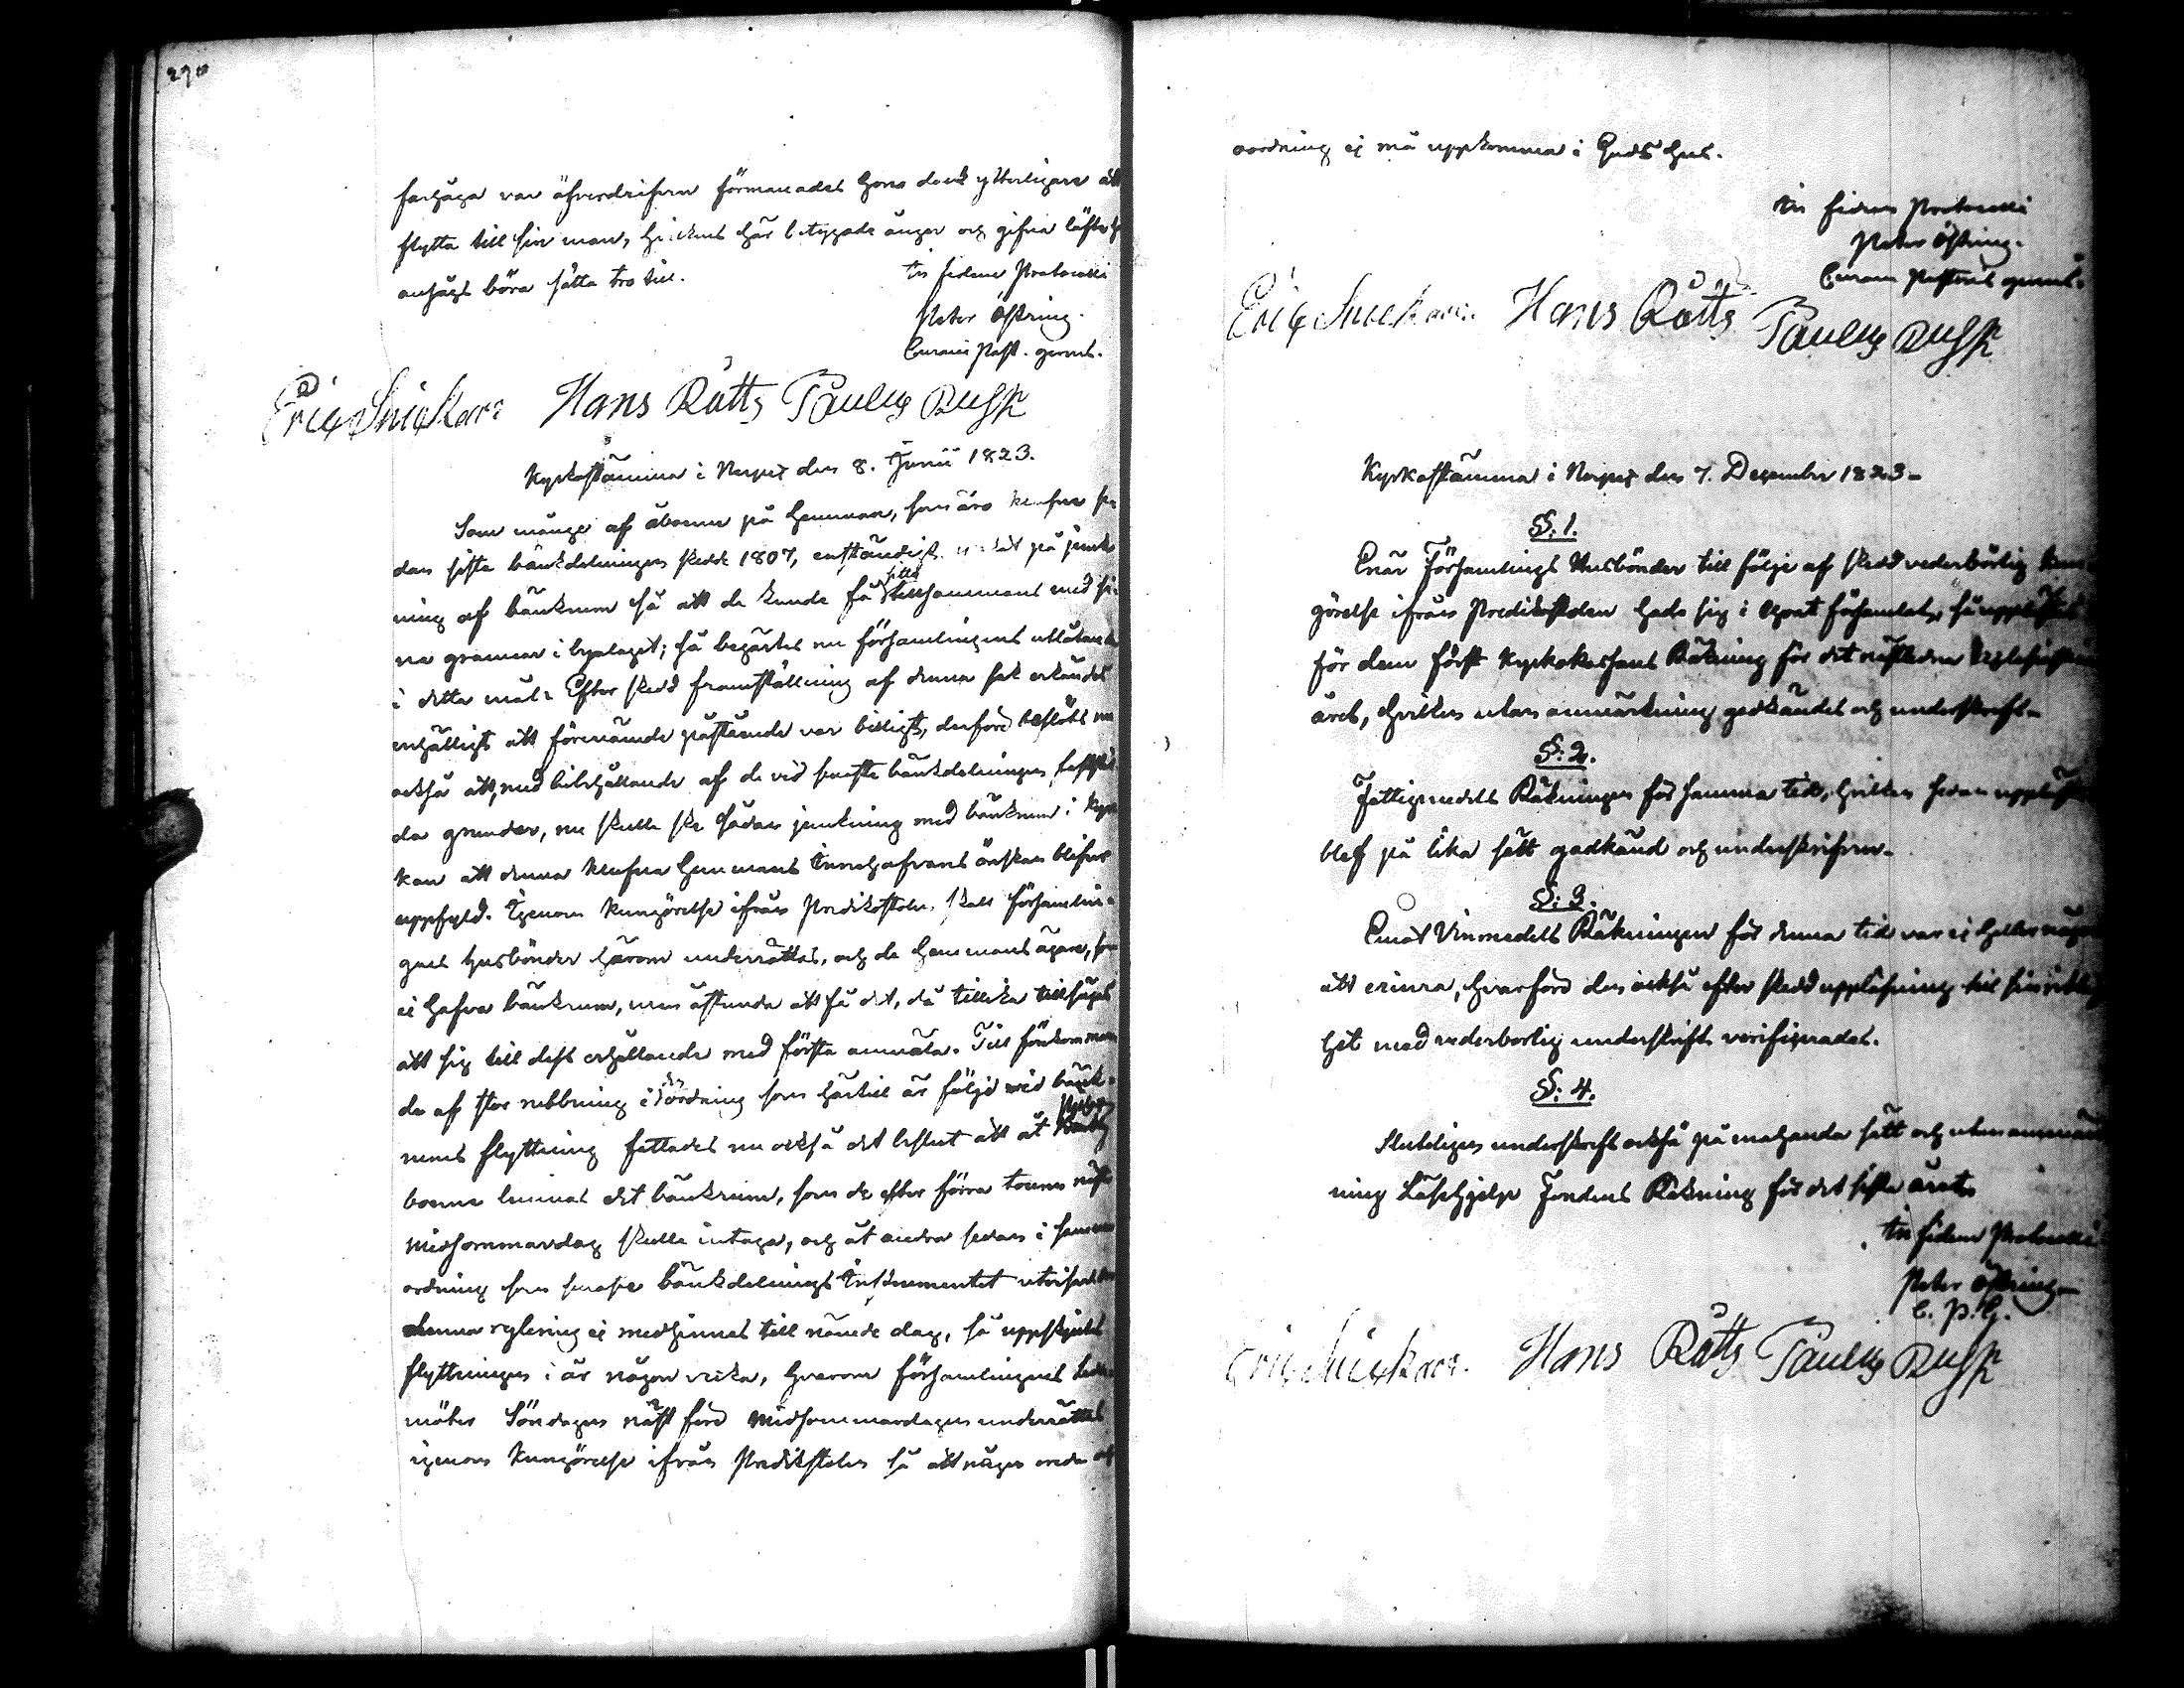 270
farhåga var öfverdrifven förmanades hon dock ytterligare att
flytta till sin man, hvilkens här betygade ånger och gifna löfte
ansågs böra sätta tro till.
In fidem Protocolli
Peter Östring.
Curam Past. gerens.
Eric Snickars Hans Rätts Paulus Busk
Kyrkostämma i Nerpes den 8. Junii 1823.
Som många af åboerne på hemman, som äro klufne se
dan sista bänkdelningen skedde 1807, enständigt på jemk
ning af bänkrum så att de kunde få sitta tillsammans med si
na grannar i byalaget; så begärtes nu församlingens utlåtande
i detta mål. Efter skedd framställning af denna sak erkändes
enhälligt att förenämde påstående var billigt, derföre beslöts nu
också att, med bibehållande af de vid senaste bänkdelningen faststäl
da grunder, nu skulle ske sådan jemkning med bänkrum i Kyr
kan att denna klufna hemmans Innehafvares önskan blifver
uppfyld. Igenom kungörelse ifrån Predikstolen, skall församlin-
gens husbönder härom underrättas, och de hemmans ägare, som
ej hafva bänkrum, men åstunda att få det, då tillika tillsägas
att sig till dess erhållande med första anmäla. Till förekomman
de af stor rubbning i den ordning som härtill är följd vid bänk-
rums flyttning fattades nu också det beslut att åt
boerne lemnas det bänkrum, som de efter förra touren näst
Midsommardag skulle intaga, och åt andra sedan i samma
ordning som senaste bänkdelnings Instrumentet utvisar
denna reglering ej medhinnes till nämde dag, så uppskjutes
flyttningen i år någon vecka, hvarom församlingens Leda-
möter Söndagen näst före Midsommardagen underrättas
igenom Kungörelse ifrån Predikstolen så att någon oreda och
oordning ej må uppkomma i Guds hus.
In fidem Protocolli
Peter Östring.
Curam Pastoris gerens.
Eric Snickars. Hans Rätts Paulus Busk
Kyrkostämma i Nerpes den 7. December 1823-
§: 1.
Enär Församlings Husbönder till följe af skedd vederbörlig kun
görelse ifrån Predikstolen hade sig i Choret församlat, så upplästes
för dem först Kyrkokassans Räkning för det nästledne
året, hvilken utan anmärkning godkändes och underskrefs-
§: 2.
Fattigmedels Räkningen för samma tid, hvilken sedan upplästes
blef på lika sätt godkänd och underskrifven-
§: 3.
Emot Vinmedels Räkningen för denna tid var ej heller något
att erinra, hvarföre den också efter skedd uppläsning till sin riktig
het med vederbörlig underskrift verifierades.
§: 4.
Slutligen underskrefs också på enahanda sätt och utan anmärk
ning Läsehjelps Fondens Räkning för det sista året.
In fidem Protocolli
Peter Östring-
C. P. G.
Eric Snickars. Hans Rätts Paulus Busk